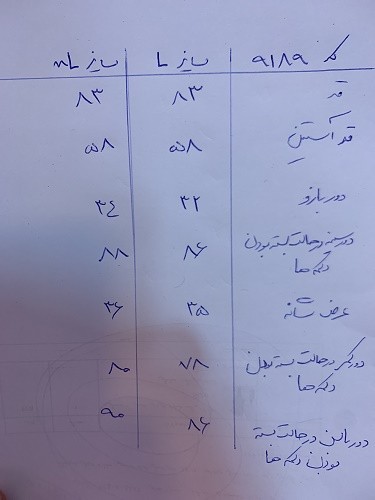 کد ۹۱۸۹ سایز L سایز XL
قد ۸۳ ۸۳
قد آستین ۵۸ ۵۸
دور بازو ۳۲ ۳۴
دور سینه در حالت بسته بودن ۸۶ ۸۸
دکمه ها
عرض شانه ۳۵ ۳۶
دور کمر در حالت بسته بودن ۷۸ ۸۰
دکمه ها
دور باسن در حالت بسته ۸۶ ۹۰
بودن دکمه ها